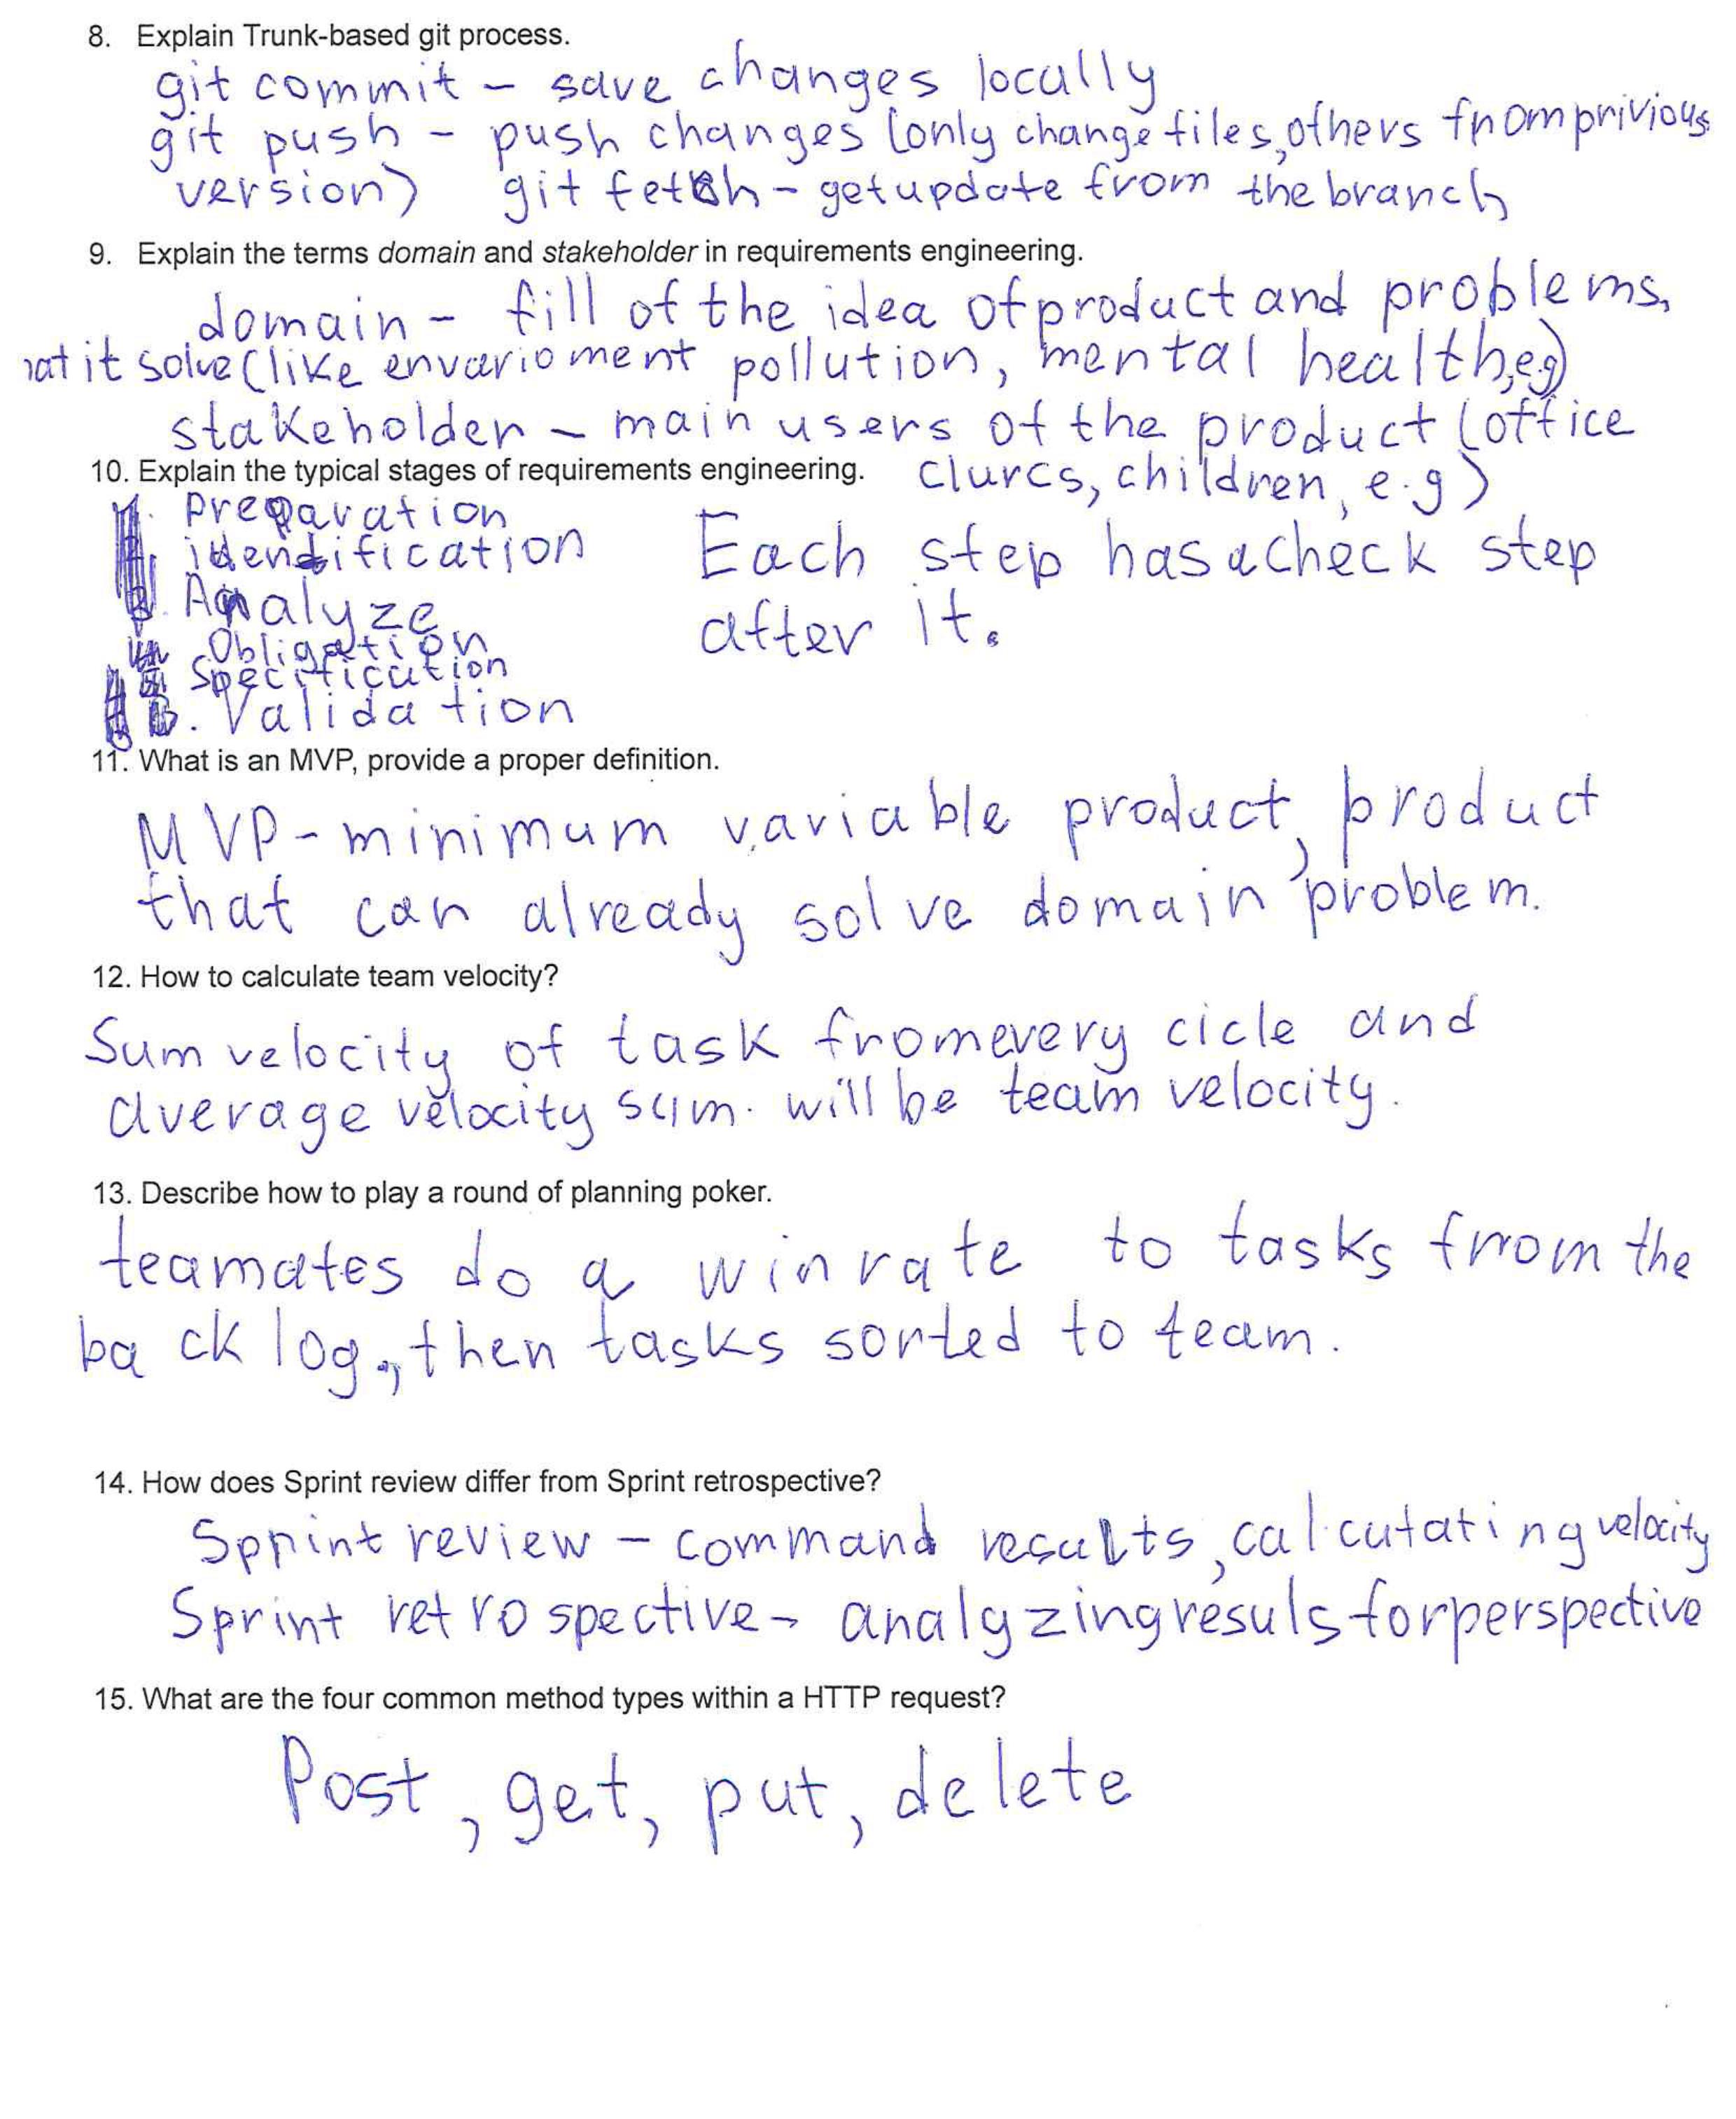 8. Explain Trunk-based git process.
git commit - save changes locally
git push - push changes (only change files, others from privious
version) git fetch - get update from the branch
9. Explain the terms domain and stakeholder in requirements engineering.
domain - fill of the idea of product and problems,
at it solve (like envarioment pollution, mental health, e.g)
stakeholder - main users of the product (office
10. Explain the typical stages of requirements engineering. clurcs, children, e.g)
1. Preparation
2. identification Each step has a check step
3. Analyze after it.
4. Obligation
5. Specification
6. Validation
11. What is an MVP, provide a proper definition.
MVP - minimum variable product, product
that can already solve domain problem.
12. How to calculate team velocity?
Sum velocity of task from every cicle and
average velocity sum. will be team velocity.
13. Describe how to play a round of planning poker.
teamates do a win rate to tasks from the
backlog, then tasks sorted to team.
14. How does Sprint review differ from Sprint retrospective?
Sprint review - command results, calcutating velocity
Sprint retrospective - analyzing resuls for perspective
15. What are the four common method types within a HTTP request?
Post, get, put, delete